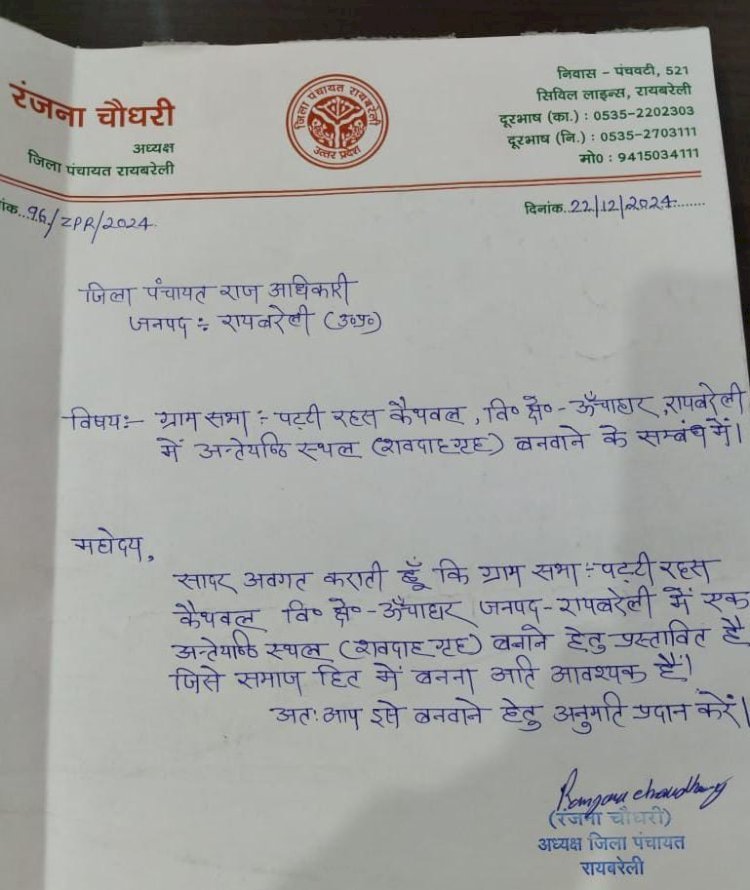 रंजना चौधरी
अध्यक्ष
जिला पंचायत रायबरेली
जिला पंचायत रायबरेली
उत्तर प्रदेश
निवास - पंचवटी, 521
सिविल लाइन्स, रायबरेली
दूरभाष (का.) : 0535-2202303
दूरभाष (नि.) : 0535-2703111
मो0 : 9415034111
ांक..96/ZPR/2024.
दिनांक..22/12/2024.......
जिला पंचायत राज अधिकारी
जनपद :- रायबरेली (उ०प्र०)
विषय:- ग्राम सभा :- पट्टी रहस कैथवल, वि० क्षे० - ऊँचाहार, रायबरेली
में अन्तेयष्ठि स्थल (शवदाह गृह) बनवाने के सम्बंध में।
महोदय,
सादर अवगत कराती हूँ कि ग्राम सभा :- पट्टी रहस
कैथवल वि० क्षे० - ऊँचाहार जनपद - रायबरेली में एक
अन्तेयष्ठि स्थल (शवदाह गृह) बनाने हेतु प्रस्तावित है
जिसे समाज हित में बनना अति आवश्यक है।
अतः आप इसे बनवाने हेतु अनुमति प्रदान करें।
Ranjana choudhary
(रंजना चौधरी)
अध्यक्ष जिला पंचायत
रायबरेली